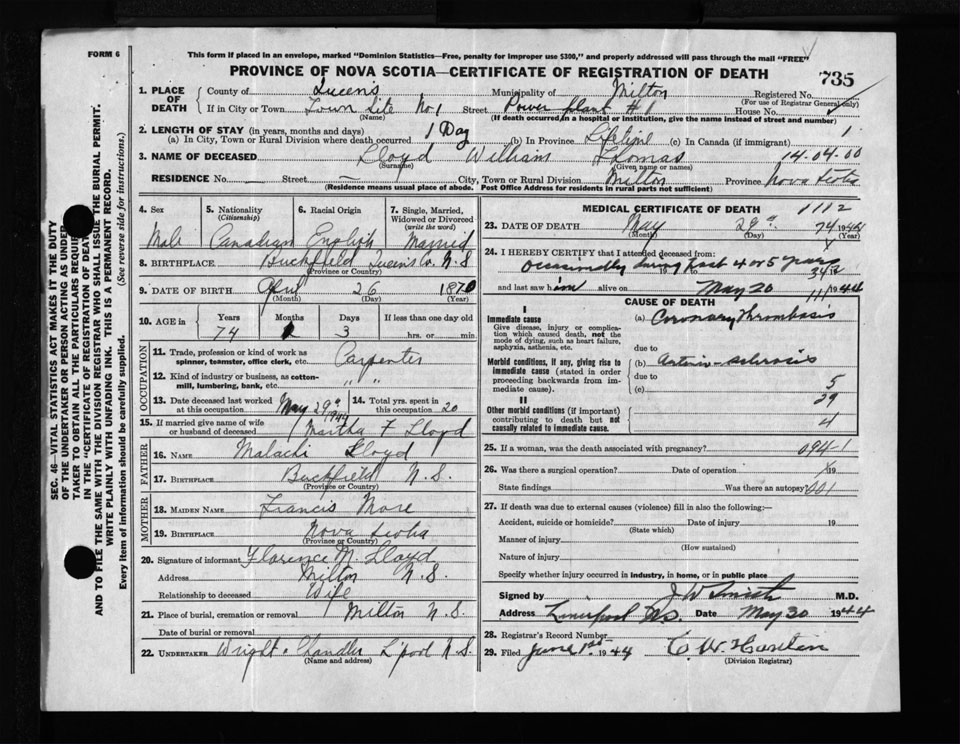 FORM 6
This form if placed in an envelope, marked "Dominion Statistics—Free, penalty for improper use $300," and properly addressed will pass through the mail "FREE"
PROVINCE OF NOVA SCOTIA—CERTIFICATE OF REGISTRATION OF DEATH 735
1. PLACE OF DEATH
County of Queens Municipality of Milton Registered No.
(For use of Registrar General only)
If in City or Town Town Site No 1 Street Power plant # 1 House No.
(Name) (If death occurred in a hospital or institution, give the name instead of street and number)
2. LENGTH OF STAY (in years, months and days)
(a) In City, Town or Rural Division where death occurred 1 Day (b) In Province Lifetime (c) In Canada (if immigrant) 1
3. NAME OF DECEASED Lloyd William Thomas 14.04.00
(Surname) (Given name or names)
RESIDENCE No. — Street — City, Town or Rural Division Milton Province Nova Scotia
(Residence means usual place of abode. Post Office Address for residents in rural parts not sufficient)
4. Sex Male
5. Nationality (Citizenship) Canadian
6. Racial Origin English
7. Single, Married, Widowed or Divorced (write the word) Married
8. BIRTHPLACE Buckfield Queens Co. N.S
(Province or Country)
9. DATE OF BIRTH April 26 1870
(Month) (Day) (Year)
10. AGE in Years Months Days If less than one day old
74 1 3 hrs. or min.
OCCUPATION
11. Trade, profession or kind of work as spinner, teamster, office clerk, etc. Carpenter
12. Kind of industry or business, as cotton-mill, lumbering, bank, etc. " "
13. Date deceased last worked at this occupation May 29 1944
14. Total yrs. spent in this occupation 20
15. If married give name of wife or husband of deceased Martha F Lloyd
FATHER
16. NAME Malachi Lloyd
17. BIRTHPLACE Buckfield N.S.
(Province or Country)
MOTHER
18. MAIDEN NAME Francis More
19. BIRTHPLACE Nova Scotia
(Province or Country)
20. Signature of informant Florence M. Lloyd
Address Milton N.S.
Relationship to deceased Wife
21. Place of burial, cremation or removal Milton N.S.
Date of burial or removal
22. UNDERTAKER Wright & Chandler L'pool N.S.
(Name and address)
MEDICAL CERTIFICATE OF DEATH 1112
23. DATE OF DEATH May 29 74 1944
(Month) (Day) (Year)
24. I HEREBY CERTIFY that I attended deceased from:
Occasionally during last 4 or 5 years
and last saw him alive on May 20 1944
I CAUSE OF DEATH
Immediate cause
Give disease, injury or complication which caused death, not the mode of dying, such as heart failure, asphyxia, asthenia, etc.
(a) Coronary Thrombosis
due to
Morbid conditions, if any, giving rise to immediate cause (stated in order proceeding backwards from immediate cause).
(b) Arterio-sclerosis
due to
(c) 5
29
II
Other morbid conditions (if important) contributing to death but not causally related to immediate cause.
4
25. If a woman, was the death associated with pregnancy? 094-1
26. Was there a surgical operation? Date of operation 19
State findings Was there an autopsy? 001
27. If death was due to external causes (violence) fill in also the following:
Accident, suicide or homicide? Date of injury 19
(State which)
Manner of injury
(How sustained)
Nature of injury
Specify whether injury occurred in industry, in home, or in public place
Signed by J W Smith M.D.
Address Liverpool N.S. Date May 30 1944
28. Registrar's Record Number
29. Filed June 1st 1944
(Division Registrar)
SEC. 46—VITAL STATISTICS ACT MAKES IT THE DUTY
OF THE UNDERTAKER OR PERSON ACTING AS UNDER-
TAKER TO OBTAIN ALL THE PARTICULARS REQUIRED
IN THE "CERTIFICATE OF REGISTRATION OF DEATH"
AND TO FILE THE SAME WITH THE DIVISION REGISTRAR WHO SHALL ISSUE THE BURIAL PERMIT.
WRITE PLAINLY WITH UNFADING INK. THIS IS A PERMANENT RECORD.
Every item of information should be carefully supplied. (See reverse side for instructions.)